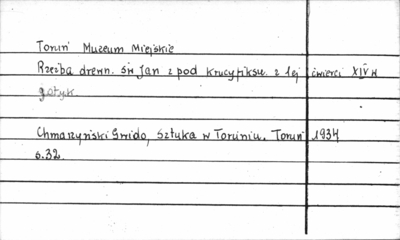 Toruń Muzeum Miejskie
Rzeźba drewn. św Jan z pod krucyfiksu. z 1ej ćwierci XIV w
gotyk.
Chmarzyński Gwido, Sztuka w Toruniu. Toruń 1934
s.32.